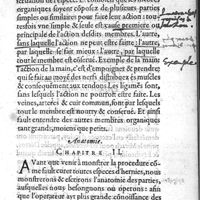 organiques soyent cõposez de plusieurs parties
simples ou similaires pour faire leur action : tou-
tesfois vne simple & seule est cause premiere ou
principale de l'action desdits membres. L'autre,
sans laquelle l'action ne peut estre faite : l'autre,
par laquelle l'action est mieux : l'autre, par laquelle
tout le membre est obserué. Exemple de la main :
l'action de la main, c'est d'empoigner & prendre,
qui se fait au moyé des nerfs distribuez és muscles
& consequemment aux tendons : Les ligamés sont,
sans lesquels l'action ne pourroit estre faite. Les
veines, arteres & cuir commun, sont par lesquels
tout le membre est nourry & conserué. Et ainsi
faut-il entendre des autres membres organiques
tant grands, moyens, que petits.
Anatomie.
CHAPITRE II.
AVant que venir à monstrer la procedure cõ-
me fault curer toutes especes d'hernies, nous
monstrerons & escrirons l'anatomie des parties,
ausquelles nous besongnons ou operons : afin
que l'operateur ayt plus grande cõnoissance des
Exemple